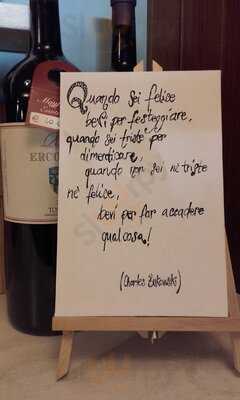 Quando sei felice
bevi per festeggiare,
quando sei triste per
dimenticare,
quando non sei nè triste
nè felice,
bevi per far accadere
qualcosa!
(Charles Bukowski)
ERCO